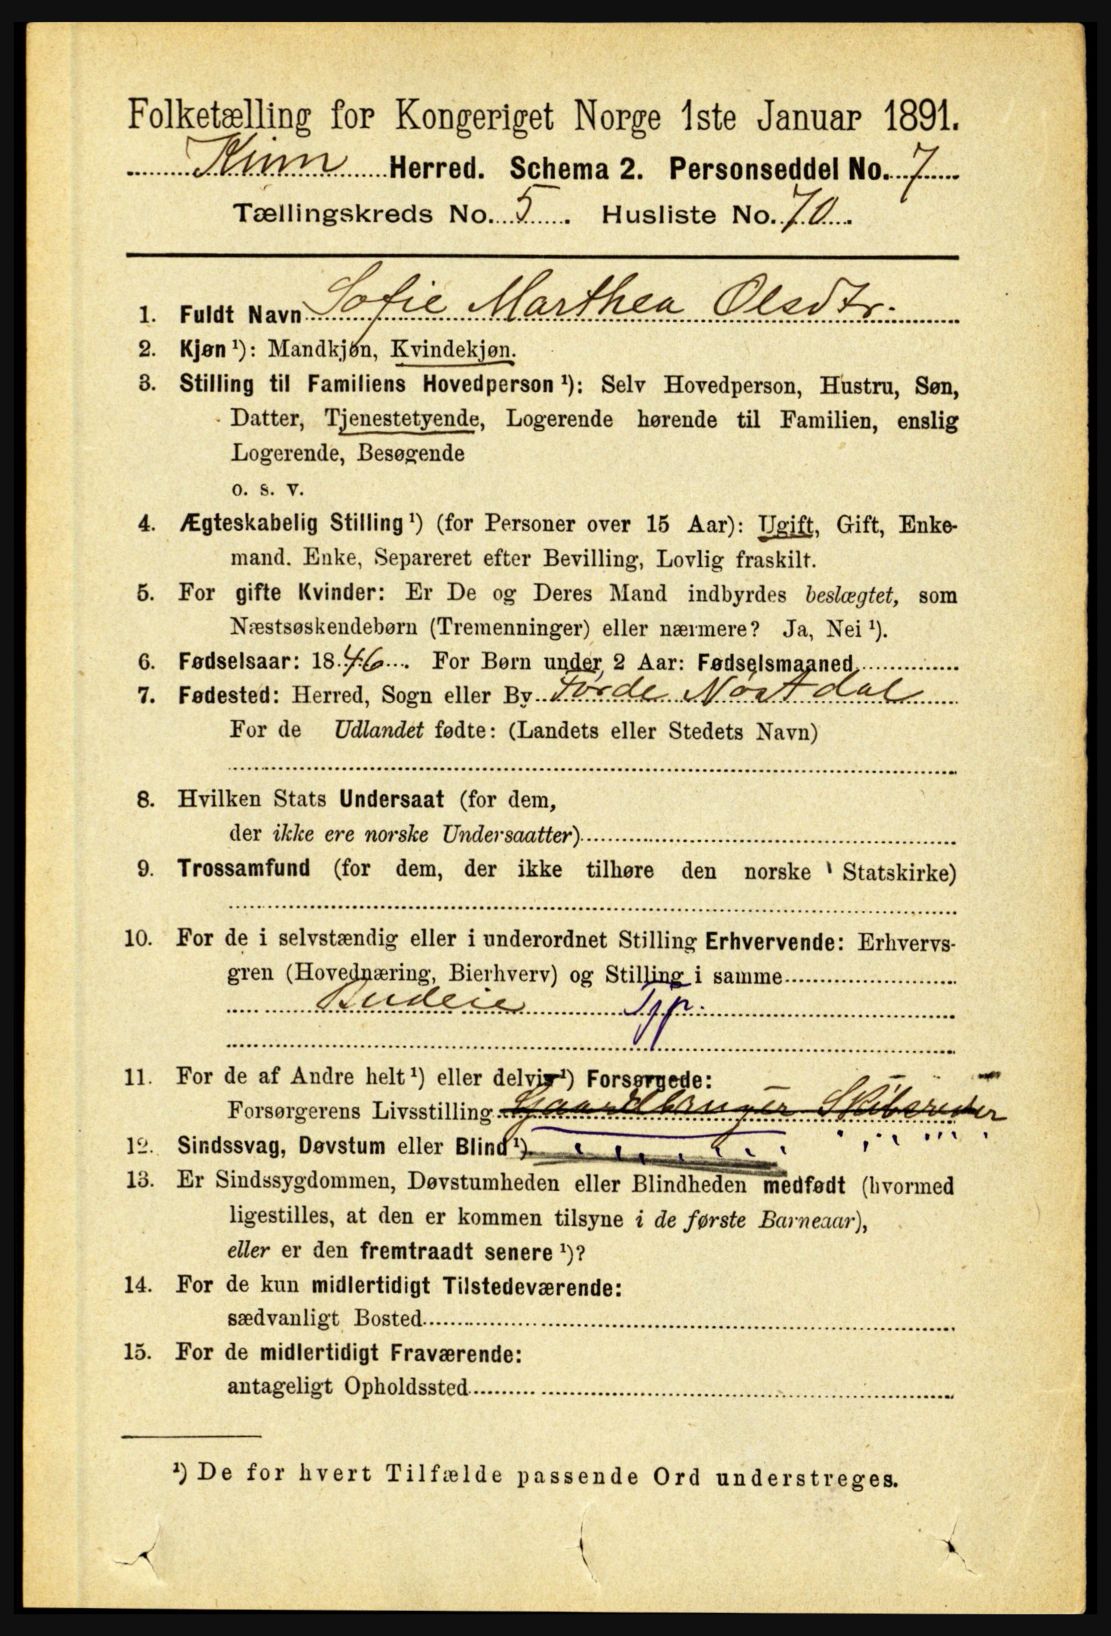 Folketælling for Kongeriget Norge 1ste Januar 1891.
Kinn Herred. Schema 2. Personseddel No. 7
Tællingskreds No. 5. Husliste No. 70.
1. Fuldt Navn Sofie Marthea Olsdtr.
2. Kjøn ¹): Mandkjøn, Kvindekjøn.
3. Stilling til Familiens Hovedperson ¹): Selv Hovedperson, Hustru, Søn,
Datter, Tjenestetyende, Logerende hørende til Familien, enslig
Logerende, Besøgende
o. s. v.
4. Ægteskabelig Stilling ¹) (for Personer over 15 Aar): Ugift, Gift, Enke-
mand. Enke, Separeret efter Bevilling, Lovlig fraskilt.
5. For gifte Kvinder: Er De og Deres Mand indbyrdes beslægtet, som
Næstsøskendebørn (Tremenninger) eller nærmere? Ja, Nei ¹).
6. Fødselsaar: 1846. For Børn under 2 Aar: Fødselsmaaned
7. Fødested: Herred, Sogn eller By Førde Nøstdal
For de Udlandet fødte: (Landets eller Stedets Navn)
8. Hvilken Stats Undersaat (for dem,
der ikke ere norske Undersaatter)
9. Trossamfund (for dem, der ikke tilhøre den norske Statskirke)
10. For de i selvstændig eller i underordnet Stilling Erhvervende: Erhvervs-
gren (Hovednæring, Bierhverv) og Stilling i samme
Budeie Tjp.
11. For de af Andre helt ¹) eller delvis ¹) Forsørgede:
Forsørgerens Livsstilling Gaardbruger Skibsreder
12. Sindssvag, Døvstum eller Blind ¹).
13. Er Sindssygdommen, Døvstumheden eller Blindheden medfødt (hvormed
ligestilles, at den er kommen tilsyne i de første Barneaar),
eller er den fremtraadt senere ¹)?
14. For de kun midlertidigt Tilstedeværende:
sædvanligt Bosted
15. For de midlertidigt Fraværende:
antageligt Opholdssted
¹) De for hvert Tilfælde passende Ord understreges.